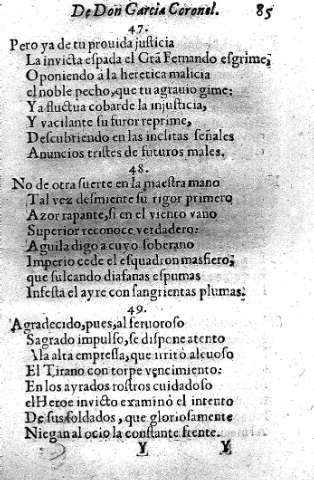 De Don Garcia Coronel. 85
47.
Pero ya de tu prouida justicia
La invicta espada el Grã Fernando esgrime;
Oponiendo à la heretica malicia
el noble pecho, que tu agrauio gime:
Ya fluctua cobarde la injusticia,
Y vacilante su furor reprime,
Descubriendo en las inclitas señales
Anuncios tristes de futuros males.
48.
No de otra suerte en la maestra mano
Tal vez desmiente su rigor primero
Azor rapante, si en el viento vano
Superior reconoce verdadero:
Aguila digo a cuyo soberano
Imperio cede el esquadron masfiero;
que sulcando diafanas espumas
Infesta el ayre con sangrientas plumas.
49.
Agradecido, pues, al feruoroso
Sagrado impulso, se dispone atento
A la alta empressa, que irritò aleuoso
El Tirano con torpe vencimiento:
En los ayrados rostros cuidadoso
el Heroe invicto examinò el intento
De sus soldados, que gloriosamente
Niegan al ocio la constante frente.
Y Y